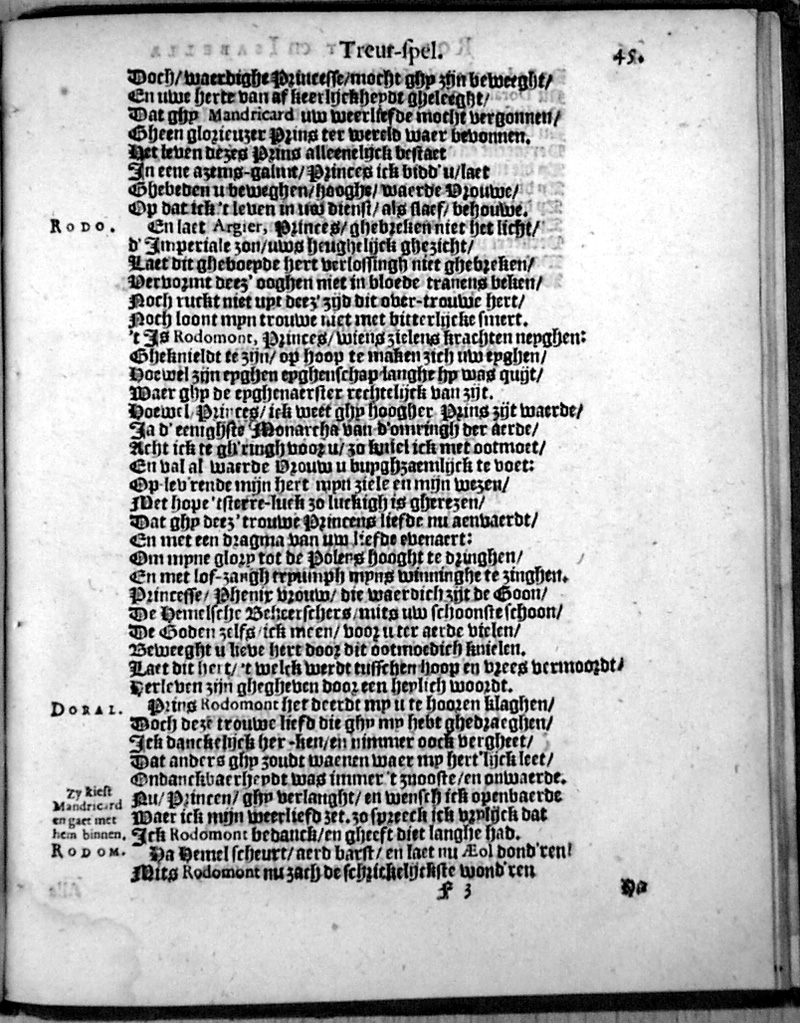 Treur-spel. 45.
Doch/ waerdighe Princesse/ mocht ghy zijn beweeght/
En uwe herte van af keerlijckheydt gheleeght/
Dat ghy Mandricard uw weerliefde mocht vergonnen/
Gheen glorieuzer Prins ter wereld waer bevonnen.
Het leven dezes Prins alleenelijck bestaet
In eene azems-galmt/ Princes ick bidd' u/ laet
Ghebeden u beweghen/ hooghe/ waerde Vrouwe/
Op dat ick 't leven in uw dienst/ als slaef/ behouwe.
RODO. En laet Argier, Princes/ ghebreken niet het licht/
d' Imperiale zon/ uws heughelijck ghezicht/
Laet dit gheboeyde hert verlossingh niet ghebreken/
Vervormt deez' ooghen niet in bloede tranens beken/
Noch ruckt niet uyt deez' zijd dit over-trouwe hert/
Noch loont myn trouwe niet met bitterlijcke smert.
't Is Rodomont, Princes/ wiens zielens krachten neyghen:
Gheknieldt te zijn/ op hoop te maken zich uw eyghen/
Hoewel zijn eyghen eyghenschap langhe hy was quijt/
Waer ghy de eyghenaerster rechtelijck van zijt.
Hoewel Princes/ ick weet ghy hoogher Prins zijt waerde/
Ja d' eenighste Monarcha van d'omringh der aerde/
Acht ick te gh'ringh voor u/ zo kniel ick met ootmoet/
En val al waerde Vrouw u buyghzaemlijck te voet:
Op-lev'rende mijn hert myn ziele en mijn wezen/
Met hope 't sterre-luck zo luckigh is gherezen/
Dat ghy deez' trouwe Princens liefde nu aenvaerdt/
En met een dragma van uw liefde evenaert:
Om myne glory tot de Polens hooght te dringhen/
En met lof-zangh tryumph myns winninghe te zinghen.
Princesse/ Phenix vrouw/ die waerdich zijt de Goon/
De Hemelsche Beheerschers/ mits uw schoonste schoon/
De Goden zelfs/ ick meen/ voor u ter aerde vielen/
Beweeght u lieve hert door dit ootmoedich knielen.
Laet dit hert/ 't welck werdt tusschen hoop en vrees vermoordt/
Herleven zijn ghegheven door een heylich woordt.
DORAL. Prins Rodomont het deerdt my u te hooren klaghen/
Doch deze trouwe liefd die ghy my hebt ghedraeghen/
Ick danckelijck her-ken/ en nimmer oock vergheet/
Dat anders ghy zoudt waenen waer my hert'lijck leet/
Ondanckbaerheydt was immer 't snooste/ en onwaerde.
Zy kiest Mandricard en gaet met hem binnen.
Nu/ Princen/ ghy verlanght/ en wensch ick openbaerde
Waer ick mijn weerliefd zet. zo spreeck ick vrylijck dat
Ick Rodomont bedanck/ en gheeft diet langhe had.
RODOM. Ha Hemel scheurt/ aerd barst/ en laet nu Æol dond'ren!
Mits Rodomont nu zach de schrickelijckste wond'ren
f 3 Ha